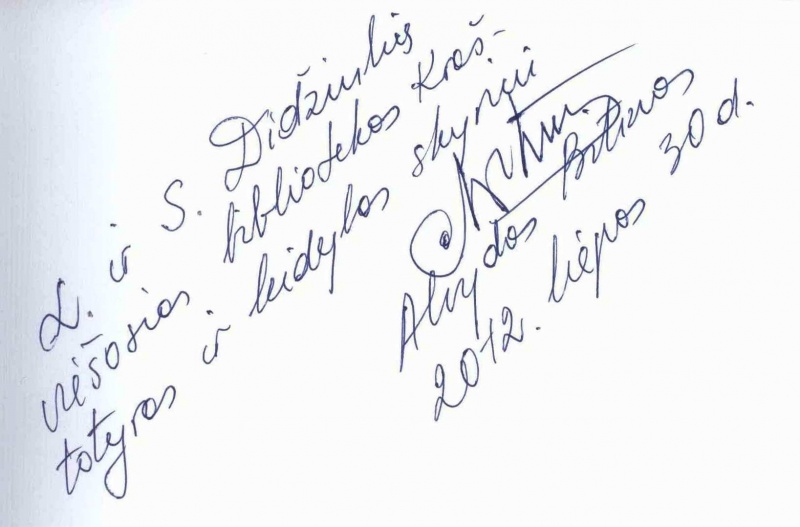 L. ir S. Didžiulių
viešosios bibliotekos Kraš-
totyros ir leidybos skyriui
Alvydas Butkus
2012. liepos 30 d.